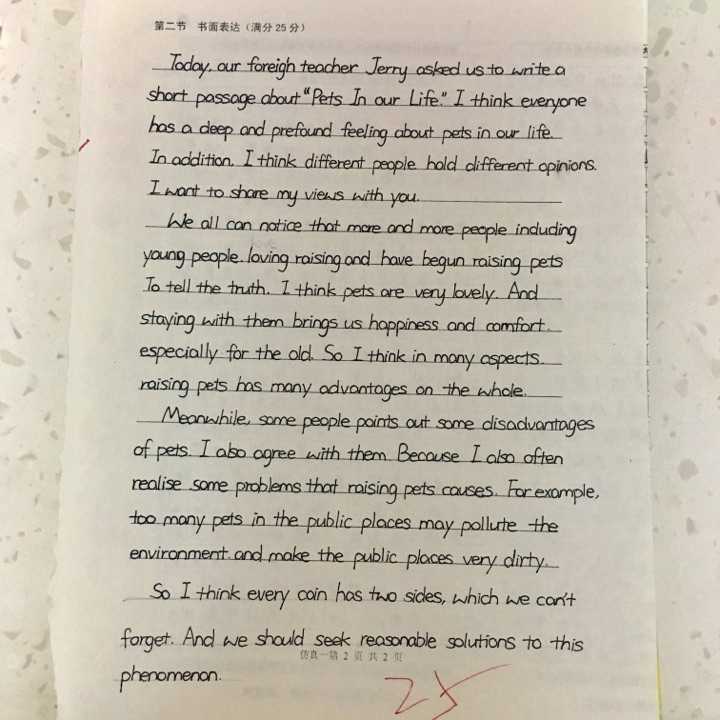 第二节 书面表达（满分 25 分）
Today, our foreigh teacher Jerry asked us to write a
short passage about "Pets In our Life." I think everyone
has a deep and prefound feeling about pets in our life.
In addition, I think different people hold different opinions.
I want to share my views with you.
We all can notice that more and more people including
young people, loving raising and have begun raising pets
To tell the truth, I think pets are very lovely. And
staying with them brings us happiness and comfort
especially for the old. So I think in many aspects
raising pets has many advantages on the whole.
Meanwhile, some people points out some disadvantages
of pets. I also agree with them. Because I also often
realise some problems that raising pets causes. For example,
too many pets in the public places may pollute the
environment and make the public places very dirty.
So I think every coin has two sides, which we can't
forget. And we should seek reasonable solutions to this
第 2 页 共 2 页
phenomenon.
25